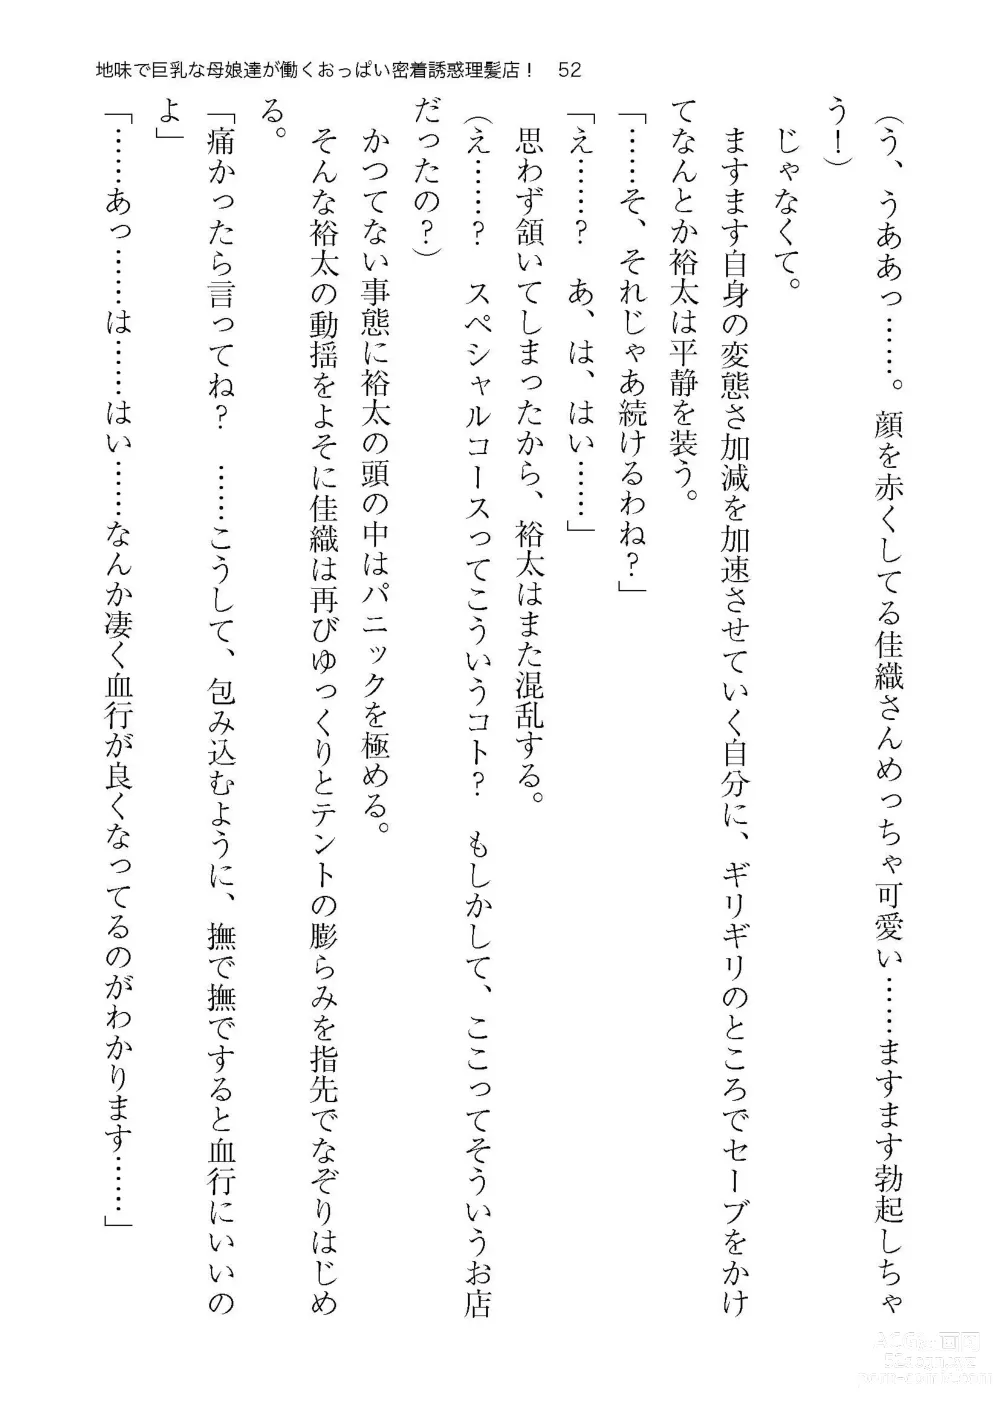 地味で巨乳な母娘達が働くおっぱい密着誘惑理髪店！　52
（う、うああっ……。顔を赤くしてる佳織さんめっちゃ可愛い……ますます勃起しちゃ
う！）
　じゃなくて。
　ますます自身の変態さ加減を加速させていく自分に、ギリギリのところでセーブをかけ
てなんとか裕太は平静を装う。
「……そ、それじゃあ続けるわね？」
「え……？　あ、は、はい……」
　思わず頷いてしまったから、裕太はまた混乱する。
（え……？　スペシャルコースってこういうコト？　もしかして、ここってそういうお店
だったの？）
　かつてない事態に裕太の頭の中はパニックを極める。
　そんな裕太の動揺をよそに佳織は再びゆっくりとテントの膨らみを指先でなぞりはじめ
る。
「痛かったら言ってね？　……こうして、包み込むように、撫で撫ですると血行にいいの
よ」
「……あっ……は……はい……なんか凄く血行が良くなってるのがわかります……」